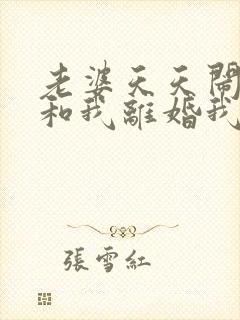 老婆天天鬧
和我離婚我
張雪紅